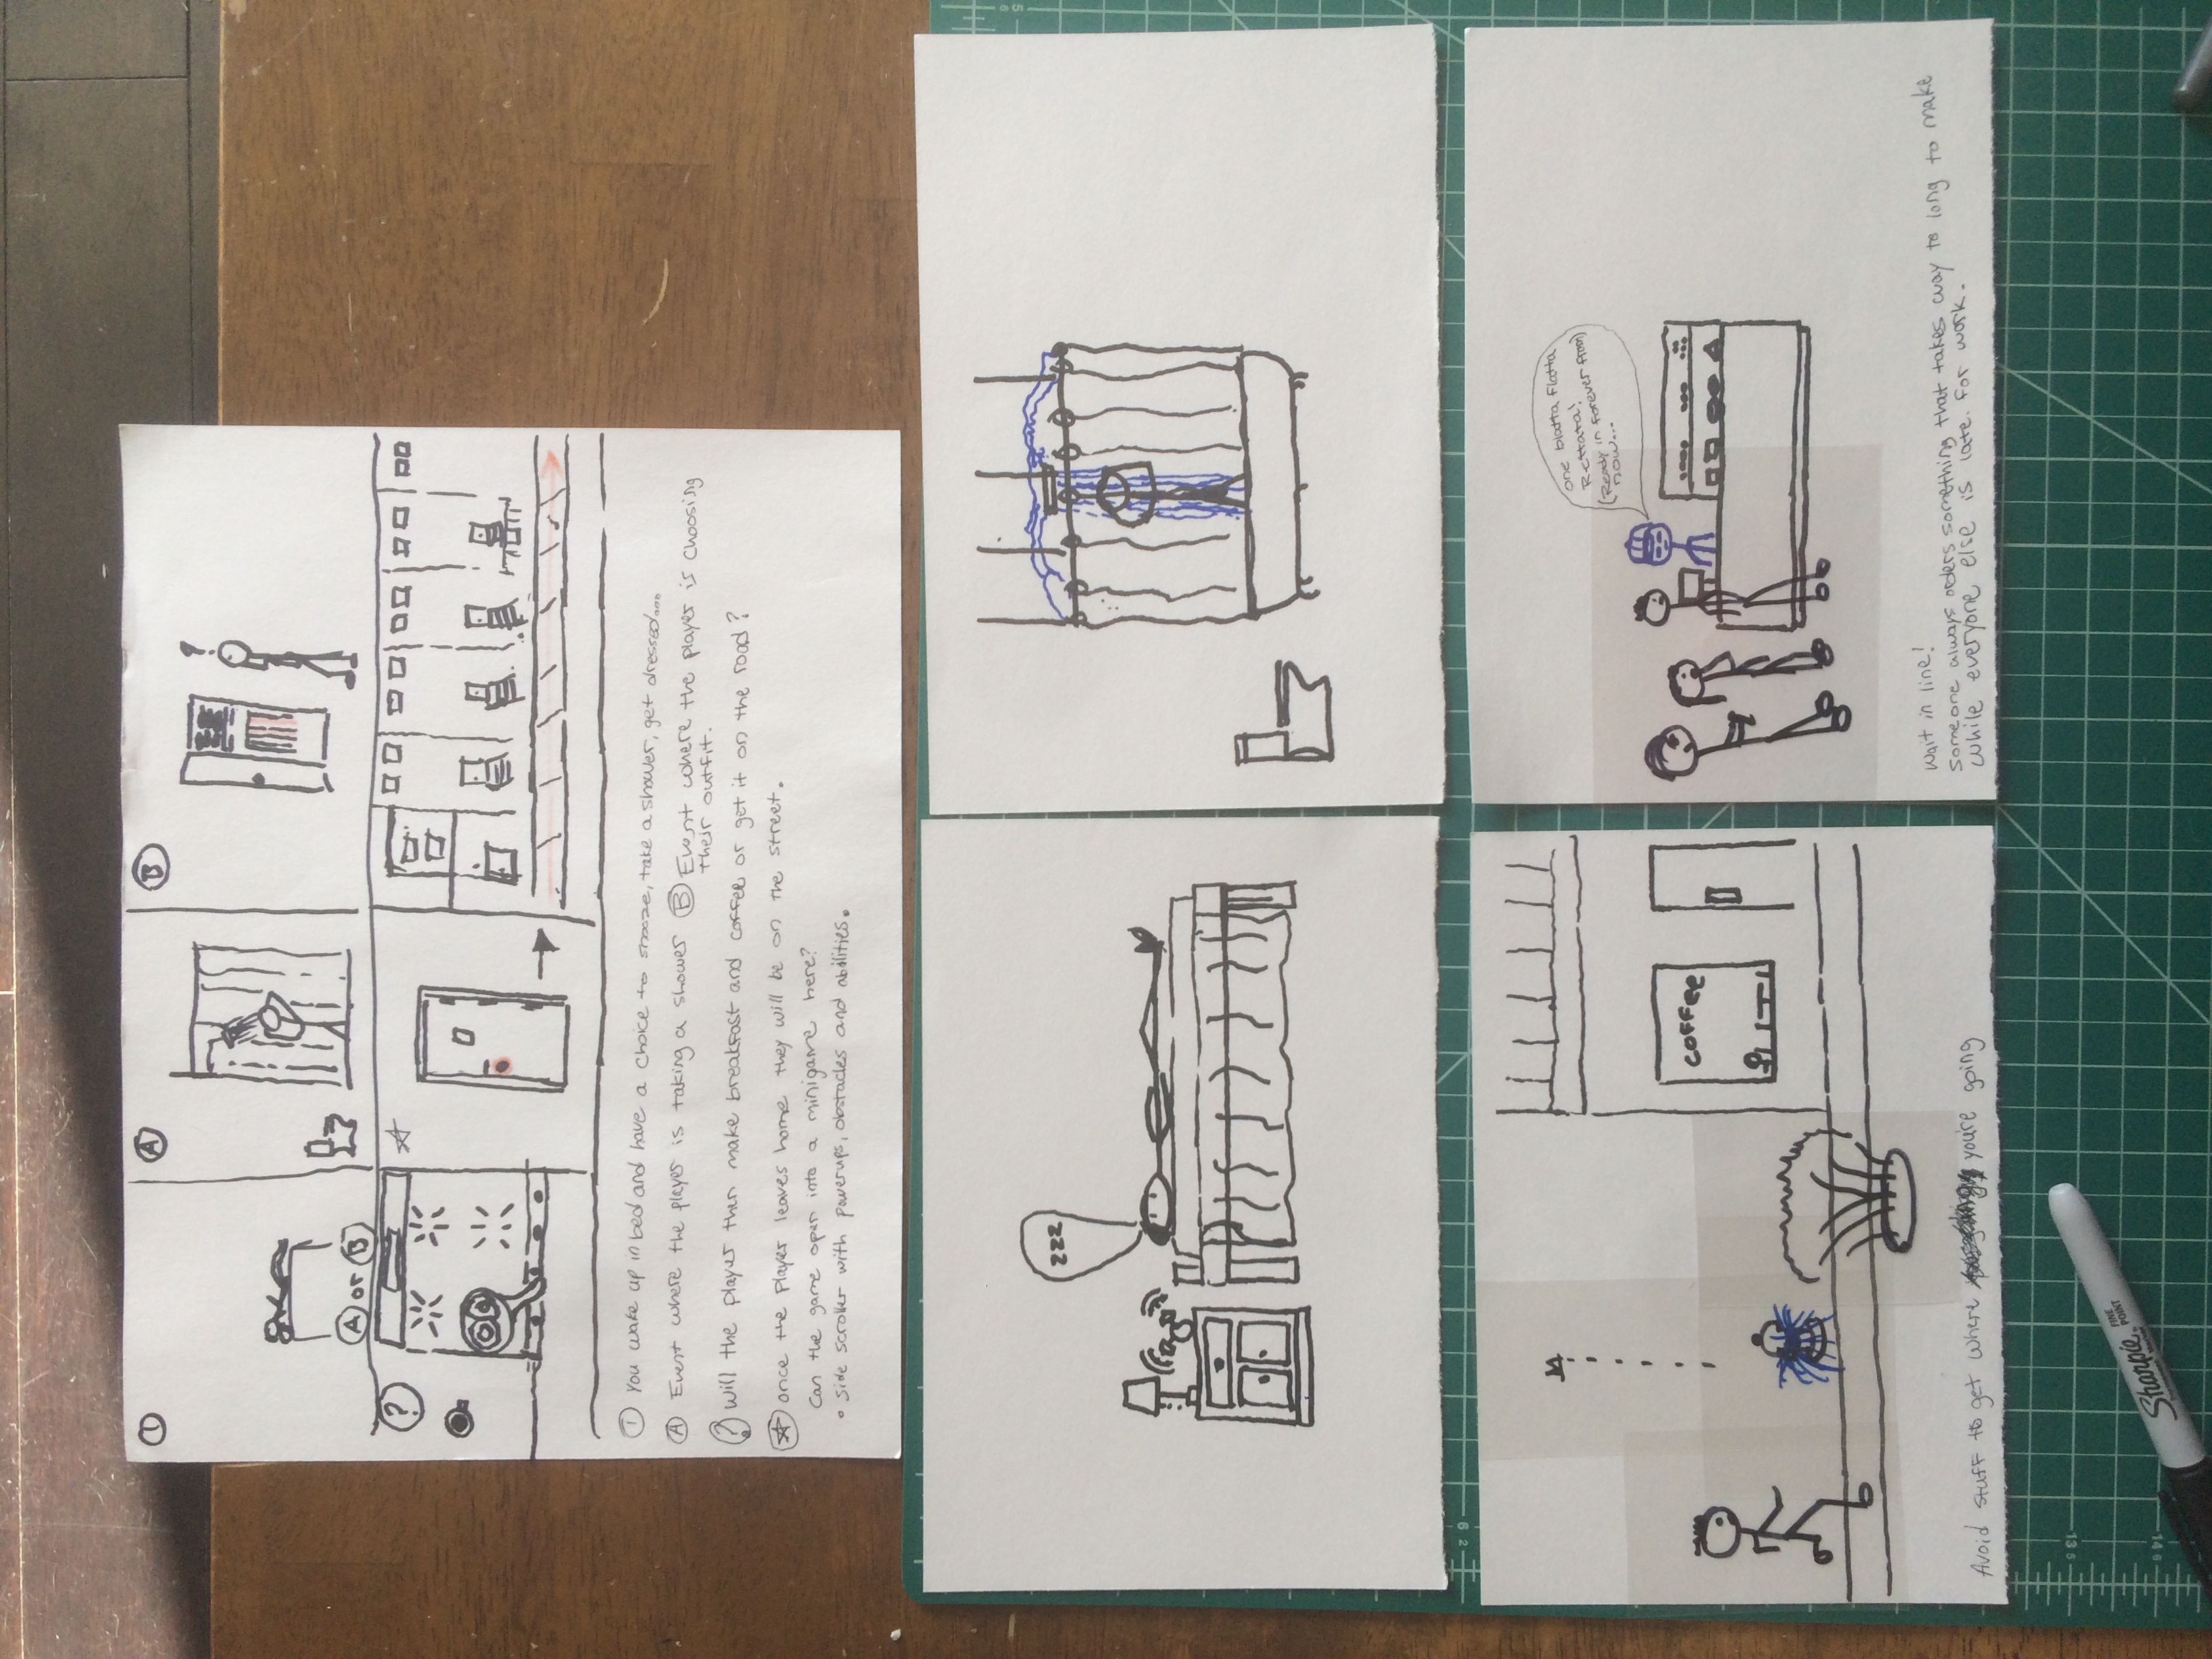 1 A B
A or B
?
① You wake up in bed and have a choice to snooze, take a shower, get dressed...
Ⓐ Event where the player is taking a shower Ⓑ Event where the player is choosing
their outfit.
? will the player then make breakfast and coffee or get it on the road?
once the player leaves home they will be on the street.
Can the game open into a minigame here?
• Side scroller with powerups, obstacles and abilities.
zzz
coffee
Avoid stuff to get where you're going
one blatta flatta
Rettata!
(Ready in forever from)
now...
Wait in line!
Someone always orders something that takes way to long to make
while everyone else is late. for work.
62
13.5
14.6
Sharpie
FINE
POINT